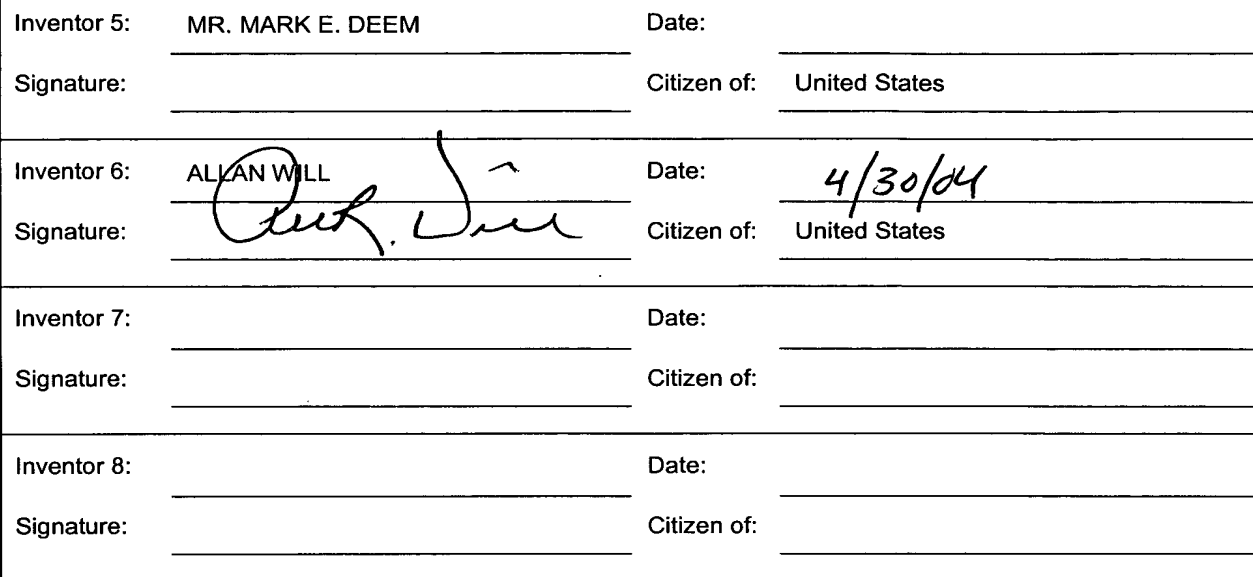 Inventor 5: MR. MARK E. DEEM Date:
Signature: Citizen of: United States
Inventor 6: ALLAN WILL Date: 4/30/04
Signature: Citizen of: United States
Inventor 7: Date:
Signature: Citizen of:
Inventor 8: Date:
Signature: Citizen of: